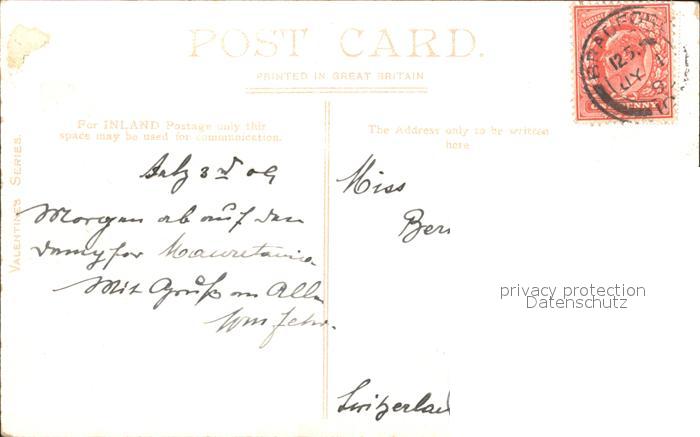 POST CARD.
PRINTED IN GREAT BRITAIN
For INLAND Postage only this
space may be used for communication.
The Address only to be written
here
VALENTINE'S SERIES.
BRADFO
12 5
JY
PENNY
July 3d 09
Morgen ab auf den
Mauretania.
Mit Gruß an Alle
Miss
Ber
Switzerlan
privacy protection
Datenschutz